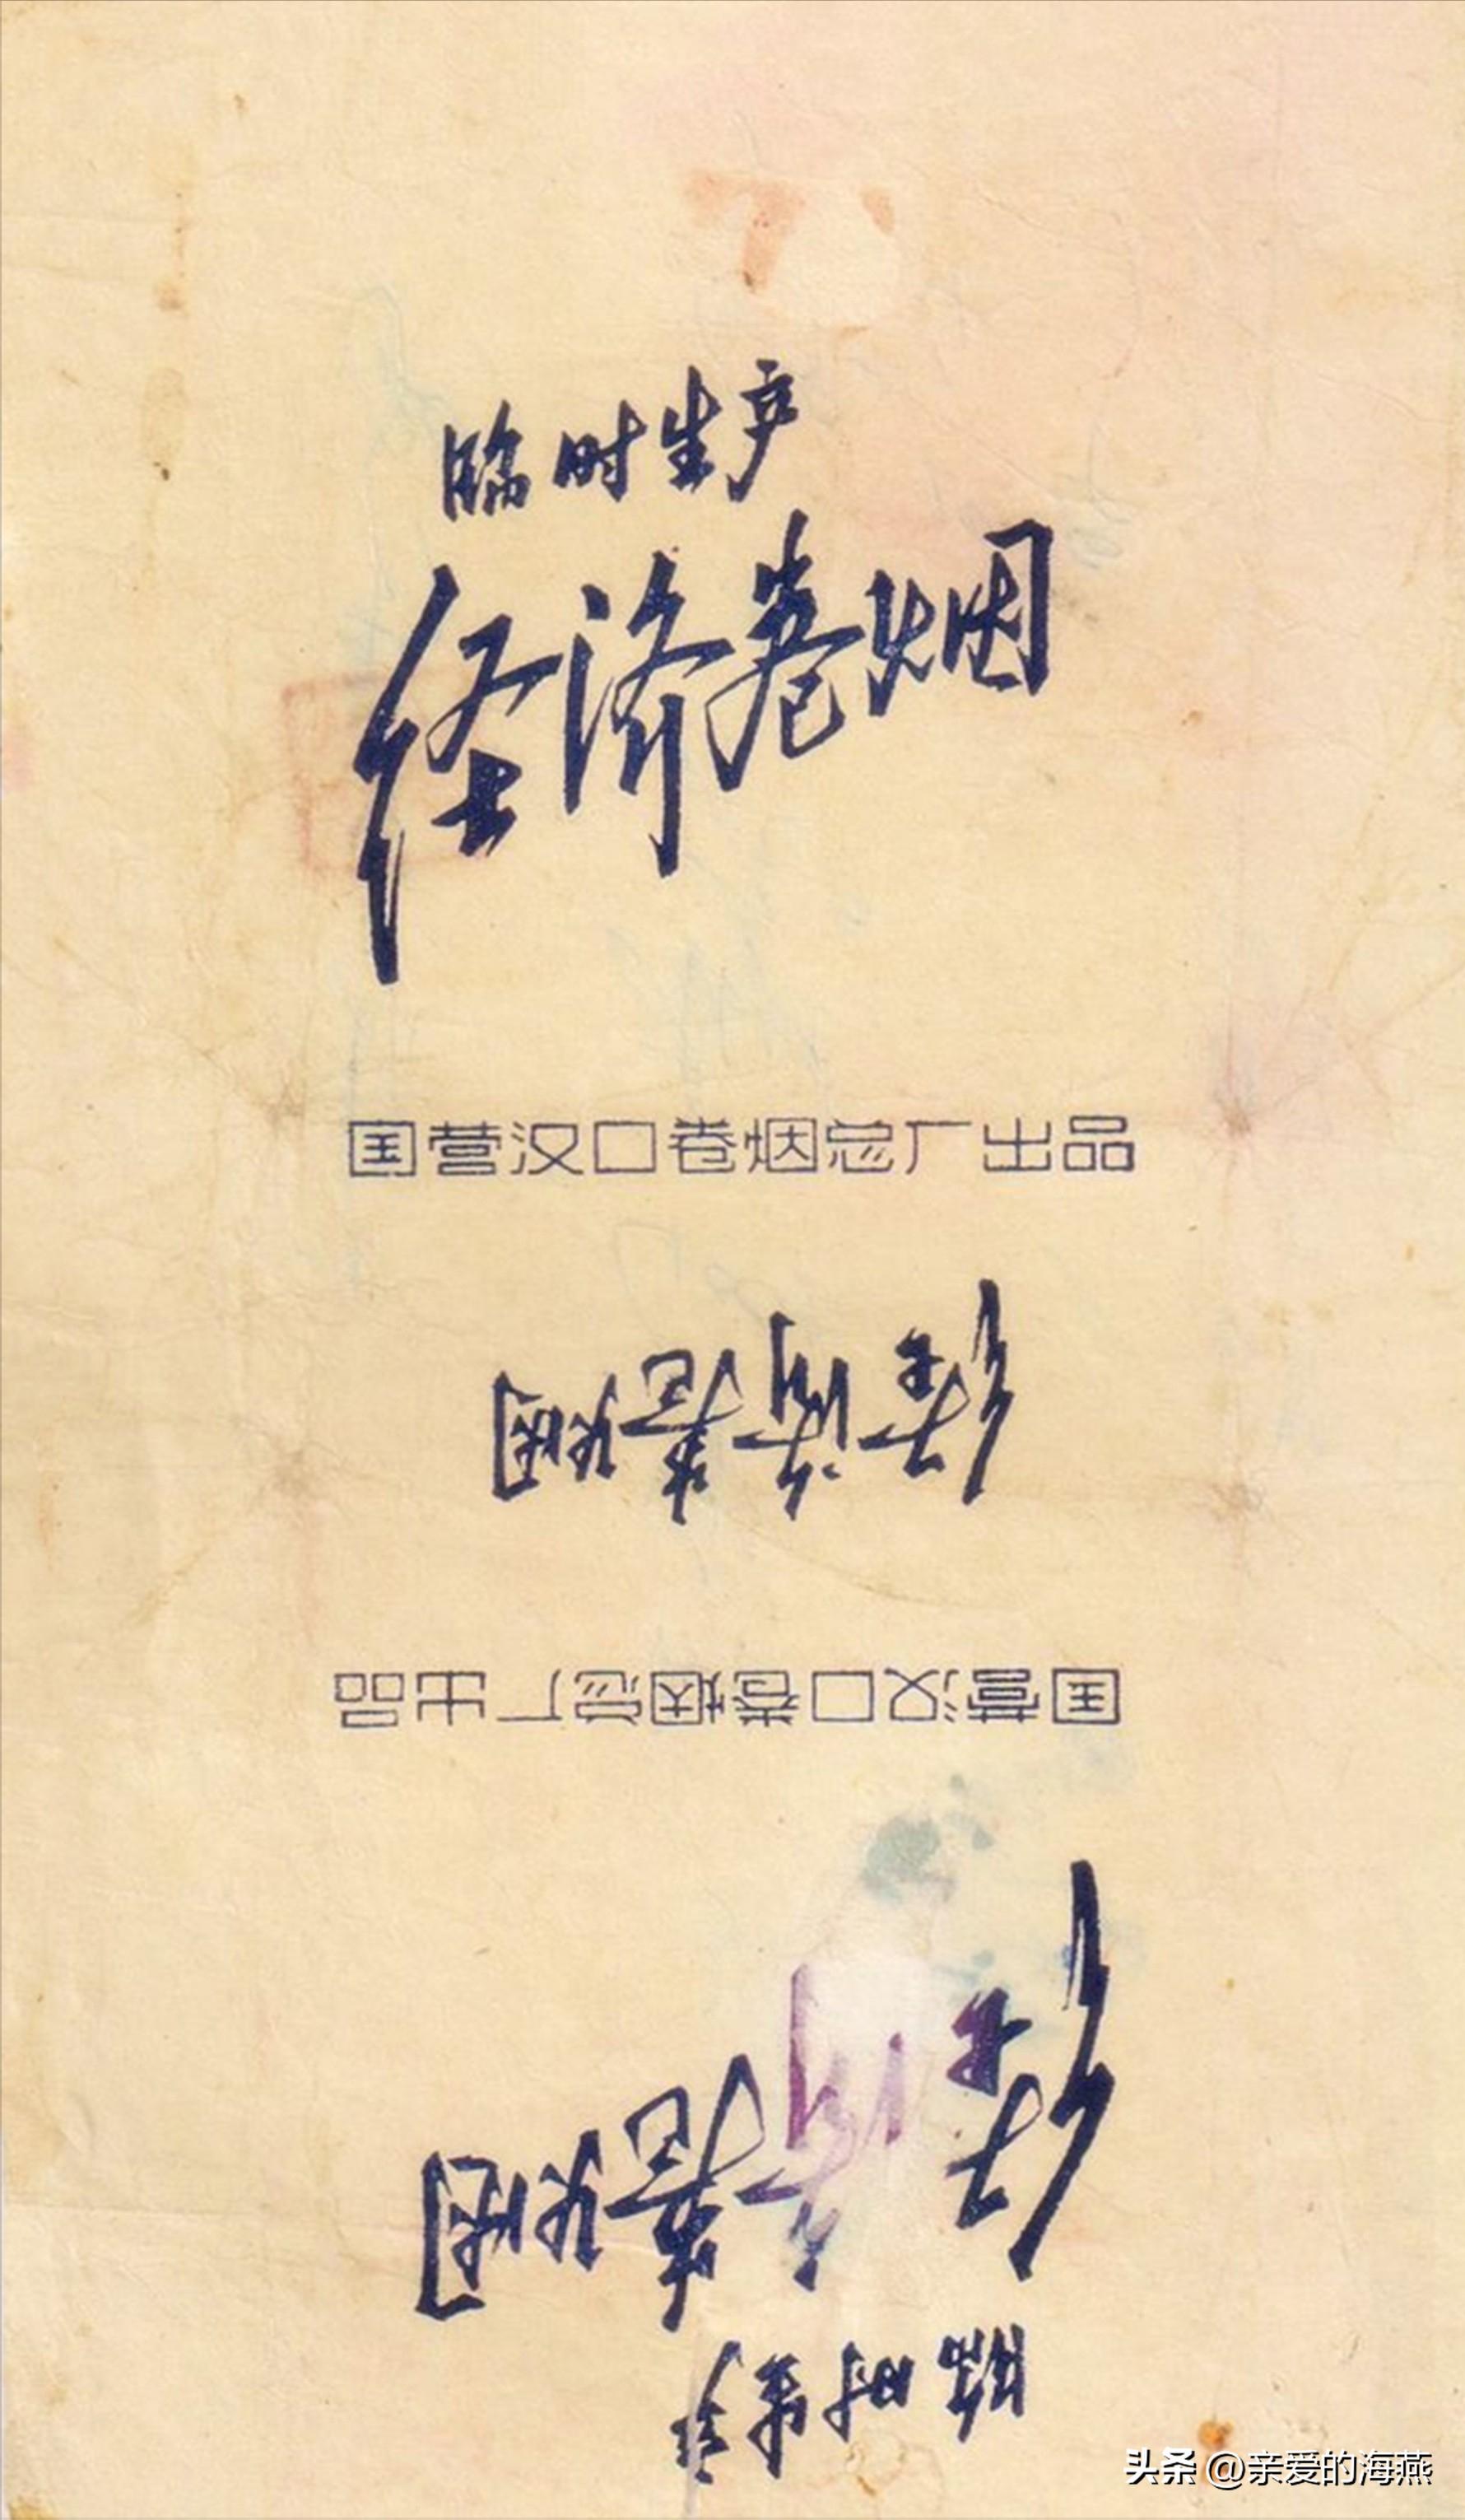 临时生产
经济卷烟
国营汉口卷烟总厂出品
经济卷烟
国营汉口卷烟总厂出品
经济卷烟
临时生产
头条 @亲爱的海燕